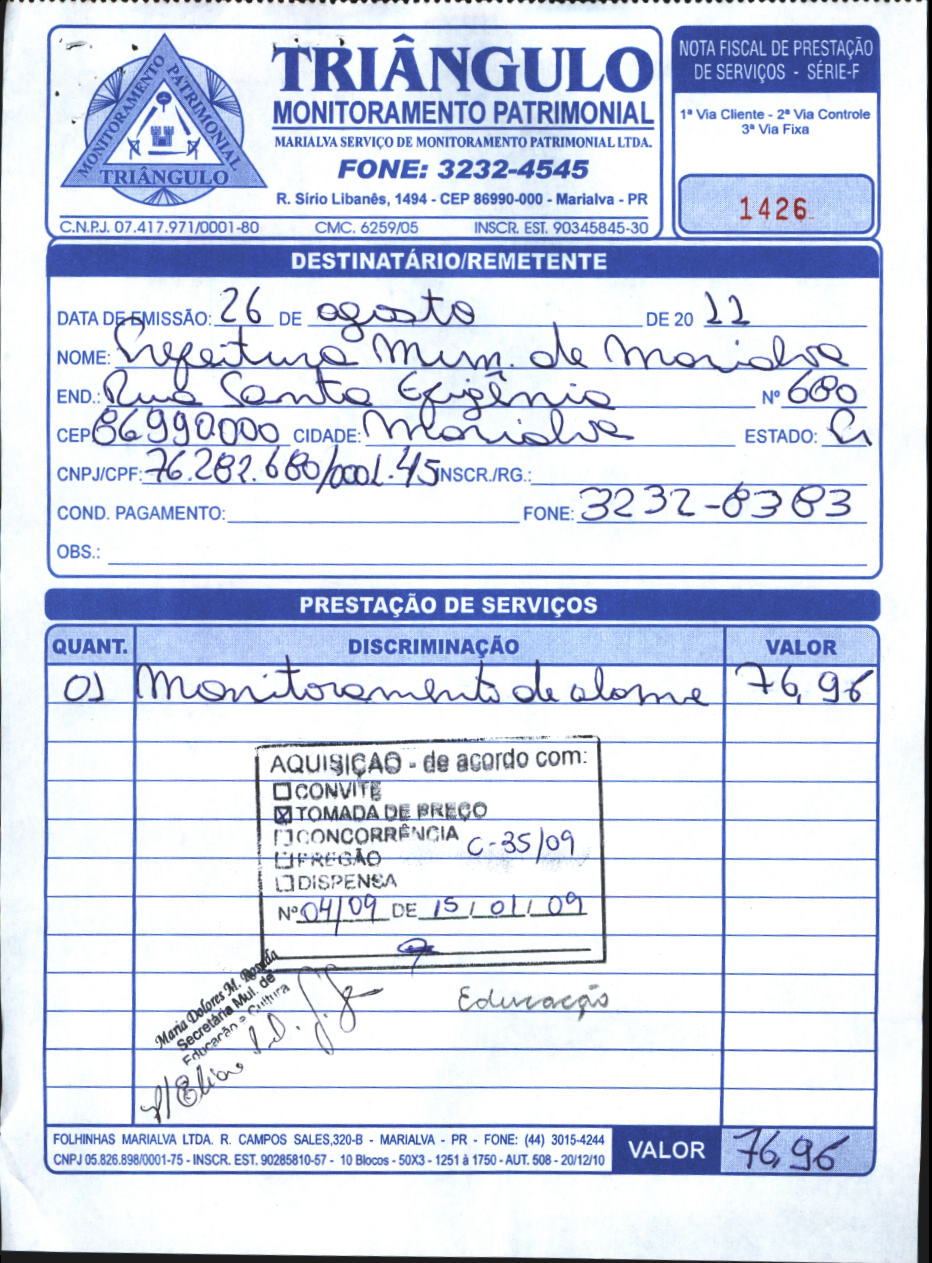 MONITORAMENTO PATRIMONIAL
TRIÂNGULO
TRIÂNGULO
MONITORAMENTO PATRIMONIAL
MARIALVA SERVIÇO DE MONITORAMENTO PATRIMONIAL LTDA.
FONE: 3232-4545
R. Sírio Libanês, 1494 - CEP 86990-000 - Marialva - PR
C.N.P.J. 07.417.971/0001-80 CMC. 6259/05 INSCR. EST. 90345845-30
NOTA FISCAL DE PRESTAÇÃO
DE SERVIÇOS - SÉRIE-F
1ª Via Cliente - 2ª Via Controle
3ª Via Fixa
1426
DESTINATÁRIO/REMETENTE
DATA DE EMISSÃO: 26 DE agosto DE 20 11
NOME: Prefeitura Mun. de Marialva
END.: Rua Santa Efigênia Nº 680
CEP 86990000 CIDADE: Marialva ESTADO: Pr
CNPJ/CPF: 76.282.680/0001-45 INSCR./RG.:
COND. PAGAMENTO: FONE: 3232-8383
OBS.:
PRESTAÇÃO DE SERVIÇOS
QUANT. DISCRIMINAÇÃO VALOR
01 Monitoramento de alarme 76,96
AQUISIÇÃO - de acordo com:
☐ CONVITE
☒ TOMADA DE PREÇO
☐ CONCORRÊNCIA C-35/09
☐ PREGÃO
☐ DISPENSA
Nº 04/09 DE 15 / 01 / 09
Maria Dolores M.
Secretária Mul. de
Educação e Cultura
Educação
FOLHINHAS MARIALVA LTDA. R. CAMPOS SALES,320-B - MARIALVA - PR - FONE: (44) 3015-4244
CNPJ 05.826.898/0001-75 - INSCR. EST. 90285810-57 - 10 Blocos - 50X3 - 1251 à 1750 - AUT. 508 - 20/12/10
VALOR 76,96